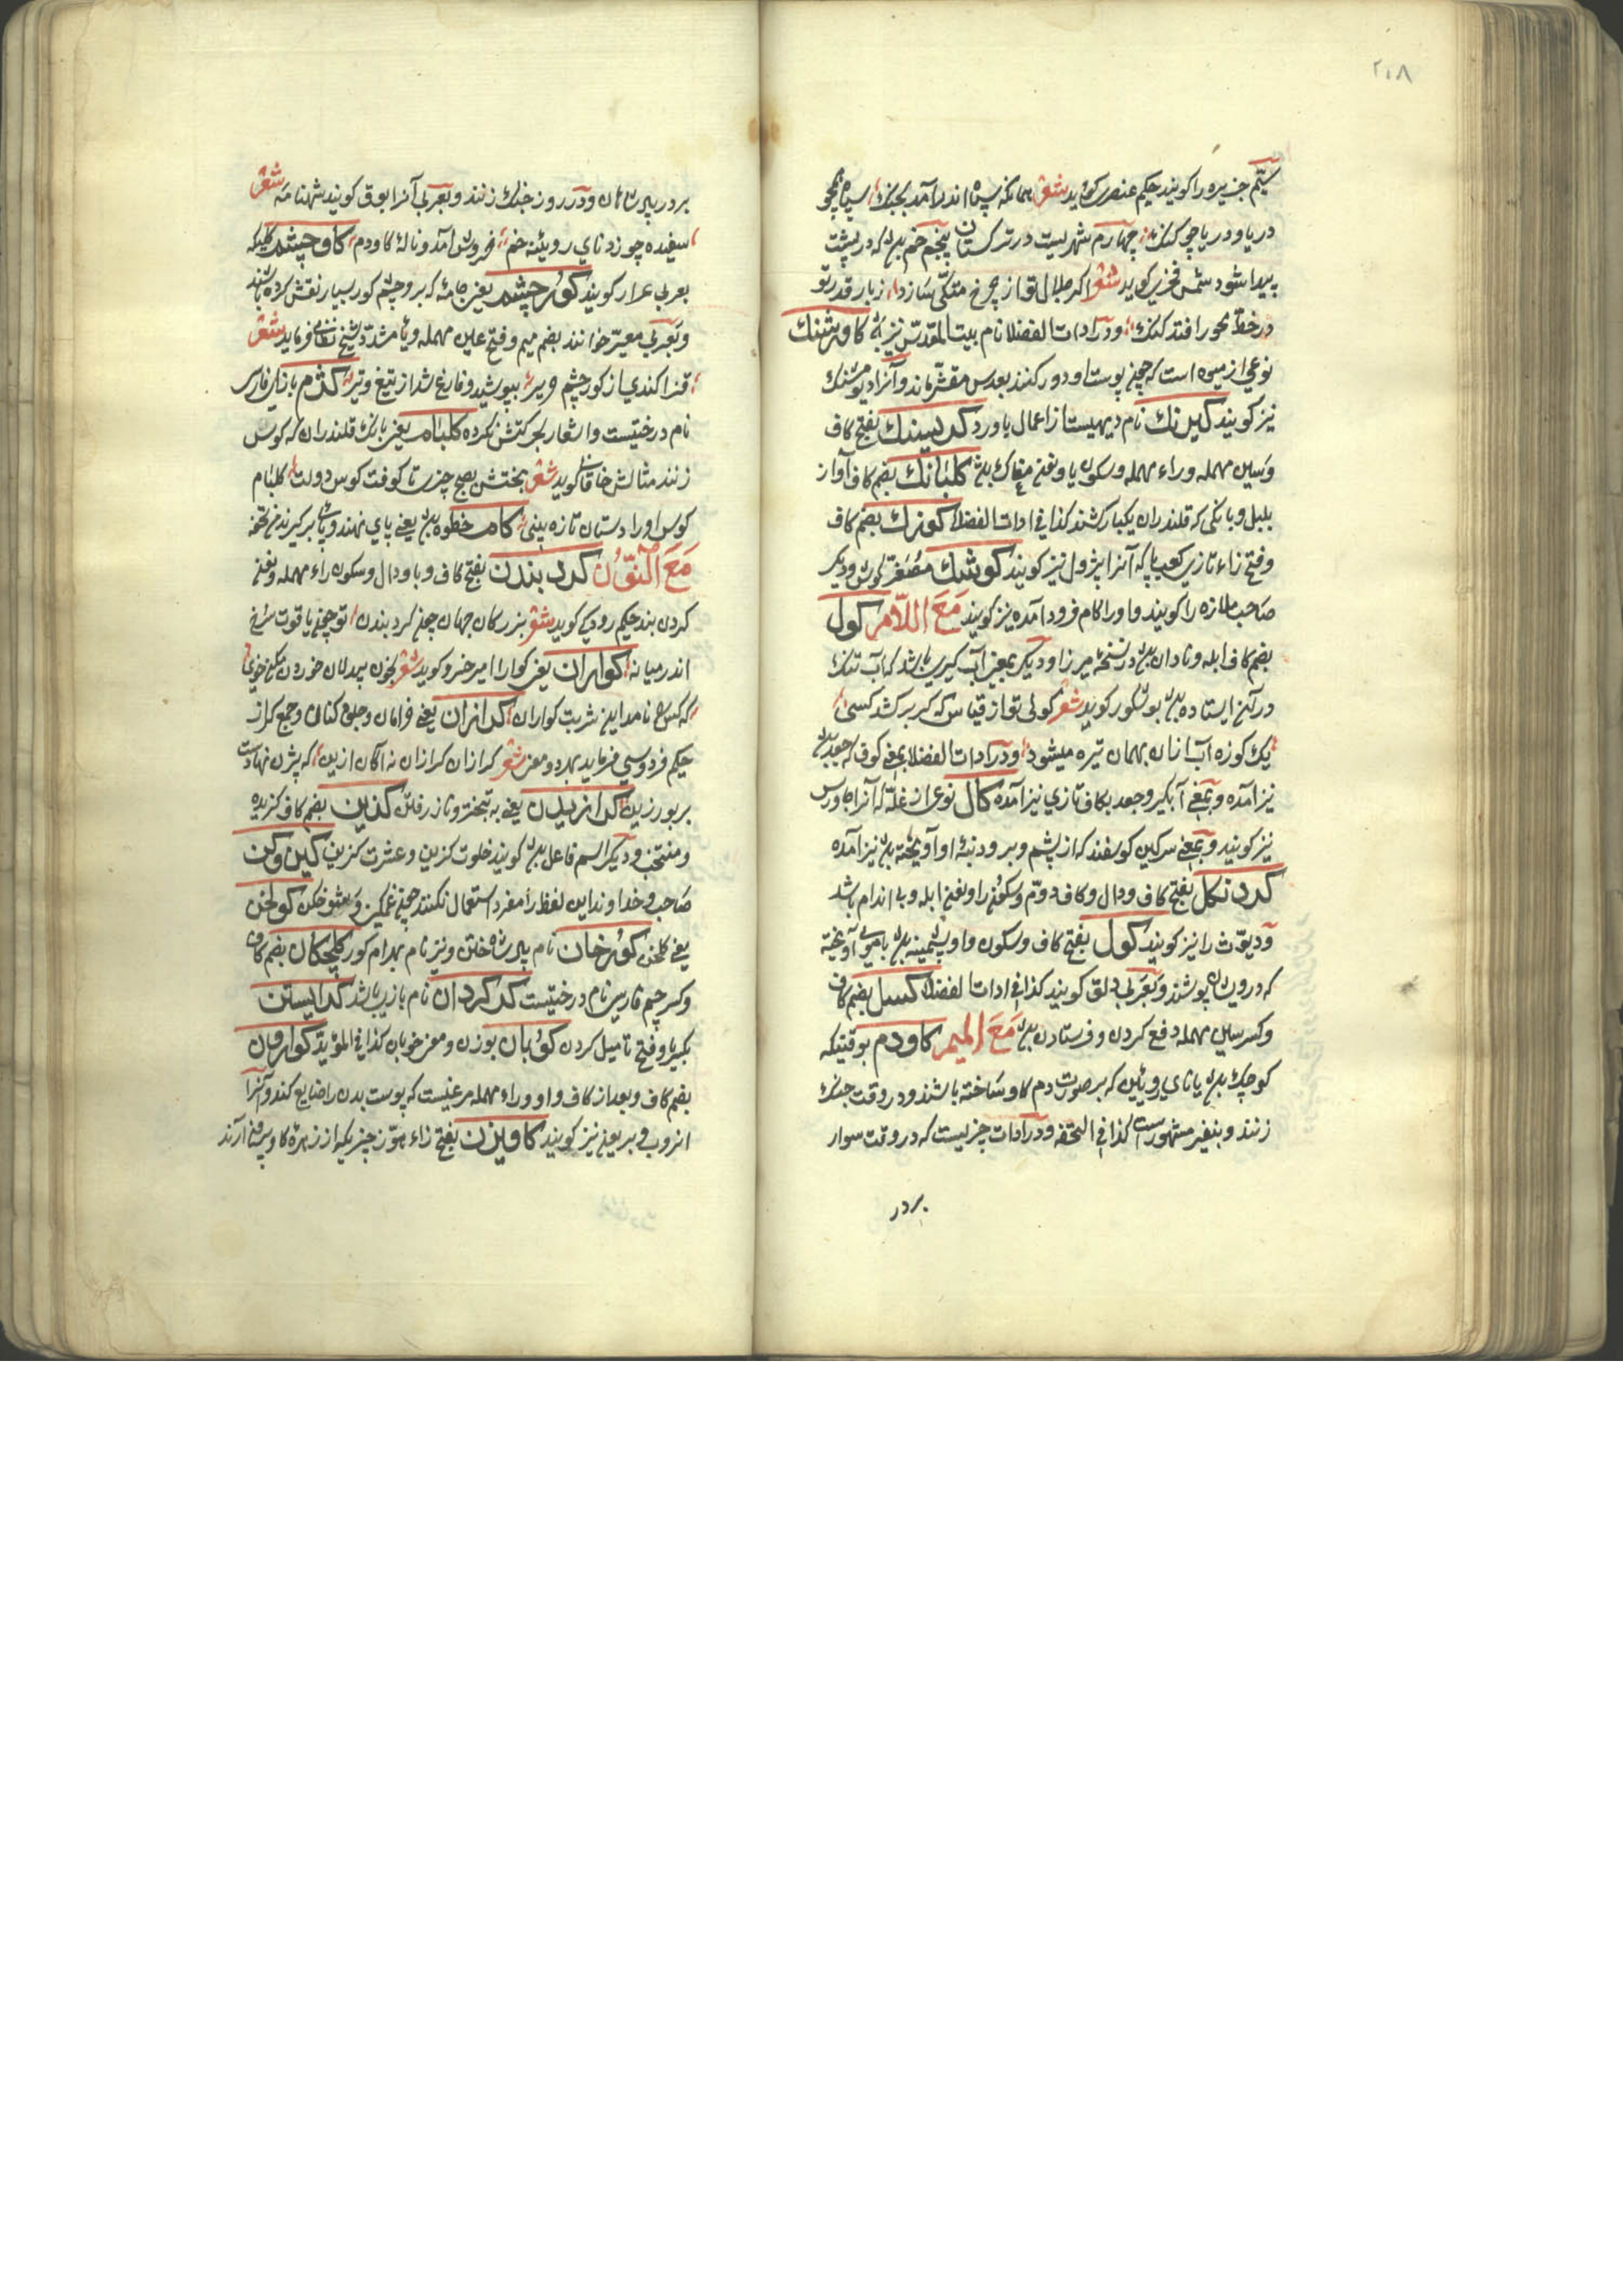 ٢٠٨
سیّم جزیره را کویند حکیم عنصری کوید شعر همانکه سپاه اندر آمد بجنک سپاه همچو
دریا و دریا چو کنک چهارم شهریست در ترکستان پنجم خم بود که در پشت
پیدا شود شمس فخری کوید شعر اکر جلال تو از چرخ متکّی سازد ز بار قدر تو
در خط محور افتد کنک و در ادات الفضلا نام بیت المقدس نیز
نوعی از میوه است که چون پوست او دور کنند بعدس مقشّر ماند و آنرا
نیز کویند کیرنک نام دیهیست از اعمال باورد بفتح کاف
وسین مهمله وراء مهمله وسکون یا و نون مغاک باشد کلبانک بضم کاف آواز
بلبل و بانکی که قلندران یکبار کشند کذا فی ادات الفضلا بضم کاف
وفتح زاء تازی کعب پا که آنرا پژول نیز کویند کوشک مصغّر کوش ودیکر
صاحب ملازه را کویند و او را کام فرود آمده نیز کویند مَعَ اللّام کول
بضم کاف ابله ونادان بود در نسخهٔ میرزا ودیکر بمعنی آب کیری باشد که آب تنک
در آن ایستاده بود بوشکور کوید شعر کولی تو از قیاس که کر بر کشد کسی
یک کوزه آب ازان بهمان تیره میشود و در ادات الفضلا بمعنی کوف که جغد بود
نیز آمده و بمعنی آبکیر وجعد بکاف تازی نیز آمده کال نوعی از غلّه که آنرا کاورس
نیز کویند و بمعنی سرکین کوسفند که از پشم و بر و دنبهٔ او آویخته بود نیز آمده
کردنکل بفتح کاف ودال وکاف دوّم وسکون را ونون ابله وبی اندام باشد
ودیوّث را نیز کویند کول بفتح کاف وسکون واو پشمینه بود با موی آویخته
که درویشان پوشند وبعربی دلق کویند کذا فی ادات الفضلا کسل بضم کاف
وکسر سین مهمله دفع کردن وفرستادن بود مَعَ المیم کاودم بوقتیکه
کوچک بود یا نای رویین که بر صورت دم کاو ساخته باشند ودر وقت جنک
زنند وبنفیر مشهور است کذا فی التحفه ودر ادات چیزیست که در وقت سوار
بردر
بر در پادشاهان ودر روز جنک زنند وبعربی آنرا بوق کویند شهنامه شعر
سفیده چو زد نای رویینه خم خروش آمد ونالهٔ کاودم کاوچشم کلیکه
بعربی عرار کویند کورچشم یعنی جامهٔ که بر و چشم کور بسیار نقش کرده باشند
وبعربی معیّن خوانند بضم میم وفتح عین مهمله ویاء مشدّد شیخ نظامی فرماید شعر
قزاکندی از کورچشم حریر بپوشید وفارغ شد از تیغ وتیر کژم بازای فارسی
نام درختیست واشعار بحرکتش نکرده کلبام یعنی بانک قلندران که کوس
زنند مثالش خاقانی کوید شعر بختش بصبح خیزی تا کوفت کوس دولت کلبام
کوس او را دستان تازه بینی کام خطوه بود یعنی پای نهند وباز برکیرند فی تحفه
مَعَ النّون کردبندن بفتح کاف وبا ودال وسکون راء مهمله ونون
کردن بند حکیم رودکی کوید شعر بزرکان جهان چون کردبندن تو چون یاقوت سرخ
اندر میانه کواران یعنی کوارا امیر خسرو کوید شعر
که کس را نامد این شربت کواران کرازان یعنی خرامان وجلوه کنان وجمع کراز
حکیم فردوسی فرماید بهر دو معنی شعر کرازان کرازان نه آکه ازین که بیژن نهادست
بر بور زین کرازیدن یعنی به تبختر وناز رفتن کزین بضم کاف کزیده
ومنتخب ودیکر اسم فاعل بود کویند خلوت کزین وعشرت کزین کین وکن
صاحب وخداوند این لفظ را مفرد استعمال نکنند چون غمکین وشوخکن کولخن
یعنی کلخن کورخان نام پادشاه ختن ونیز نام بهرام کور کلچکان بضم کاف
وکسر جیم فارسی نام درختیست کردکردان نام بازی باشد کرایستن
بکسر یا وفتح تا میل کردن کوبان بوزن ومعنی خوبان کذا فی المؤید کوارون
بضم کاف وبعد از کاف واو وراء مهمله مرغیست که پوست بدن را ضایع کند وآنرا
اندوب وبریون نیز کویند کاویزن بفتح زاء هوّز چیزیکه از زهرهٔ کاو بیرون آرند